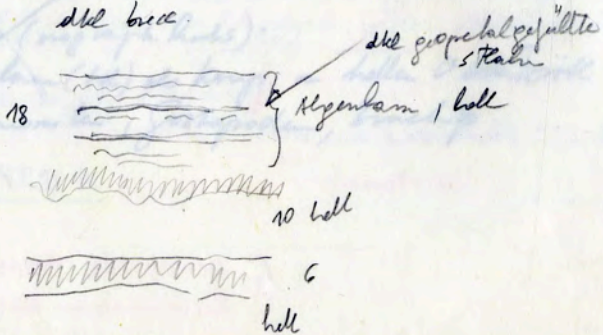 dkl brecc.
dkl geopetal gefüllte
18
Algenlam, hell
10 hell
6
hell